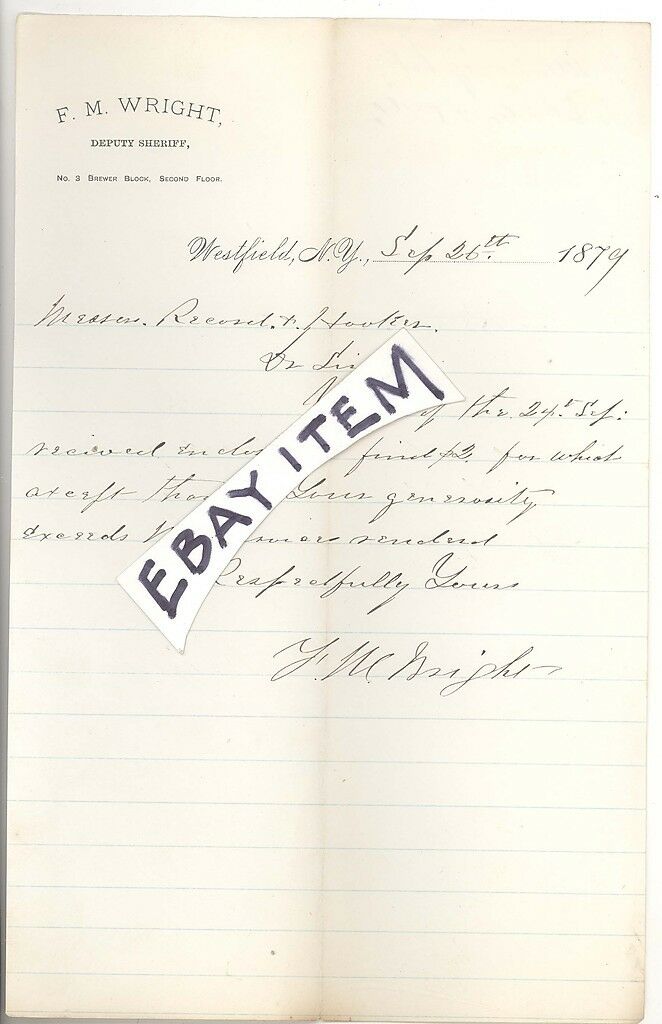 F. M. WRIGHT,
DEPUTY SHERIFF,
No. 3 Brewer Block, Second Floor.
Westfield, N.Y., Sep 26th 1879
Messrs. Record & Hooker.
Dr Sir
of the 24th Sep:
recived find $2. for which
except Your generosity
exceeds rendered
Respectfully Yours
F. M. Wright
EBAY ITEM